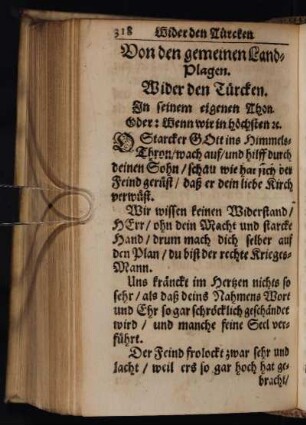 318 Wider den Türcken.
Von den gemeinen Land-
Plagen.
Wider den Türcken.
In seinem eigenen Thon.
Oder: Wenn wir in höchsten ꝛc.
O Starcker GOtt ins Himmels-
Thron/ wach auf/ und hilff durch
deinen Sohn/ schau wie hat sich der
Feind gerüst/ daß er dein liebe Kirch
verwüst.
Wir wissen keinen Widerstand/
HErr/ ohn dein Macht und starcke
Hand/ drum mach dich selber auf
den Plan/ du bist der rechte Krieges-
Mann.
Uns kränckt im Hertzen nichts so
sehr/ als daß deins Nahmens Wort
und Ehr so gar schröcklich geschändet
wird/ und manche feine Seel ver-
führt.
Der Feind frolockt zwar sehr und
lacht/ weil ers so gar hoch hat ge-
bracht/